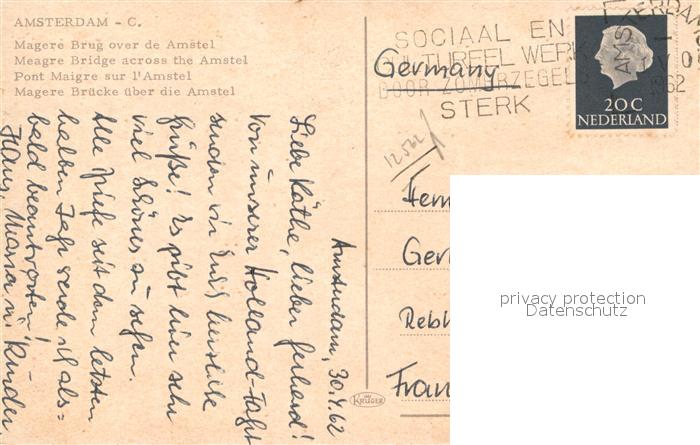 AMSTERDAM - C.
Magere Brug over de Amstel
Meagre Bridge across the Amstel
Pont Maigre sur l'Amstel
Magere Brücke über die Amstel
SOCIAAL EN
CULTUREEL WERK
DOOR ZOMERZEGELS
STERK
AMSTERDAM
1962
20 C
NEDERLAND
Germany
12562
Amsterdam, 30.4.62
Liebe Käthe, lieber Gerhard!
Von unserer Holland-Fahrt
senden wir Euch herzliche
Grüße! Es gibt hier sehr
viel Schönes zu sehen.
Alle Briefe seit dem letzten
halben Jahr werde ich als=
bald beantworten!
Hans, Maria u. Kinder.
Herrn
Ger
Rebl
Fran
KRÜGER
privacy protection
Datenschutz